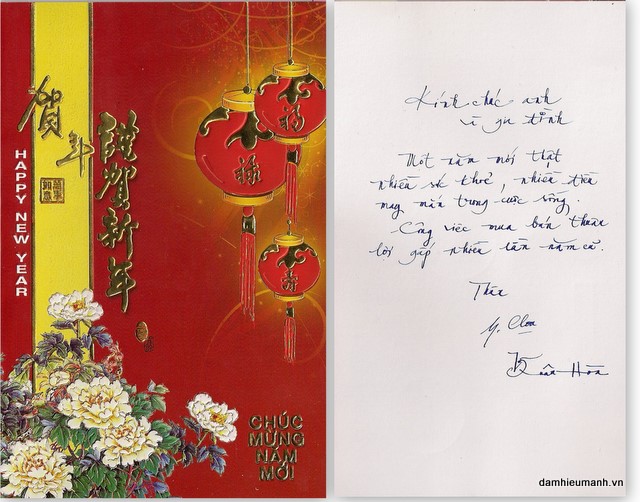 賀年
HAPPY NEW YEAR
謹賀新年
祿
福
壽
CHÚC
MỪNG
NĂM
MỚI
Kính chúc anh
và gia đình
Một năm mới thật
nhiều sức khoẻ, nhiều tiền
may mắn trong cuộc sống.
Công việc mua bán thuận
lợi gấp nhiều lần năm cũ.
Thân
Xuân Hòa
damhieumanh.vn